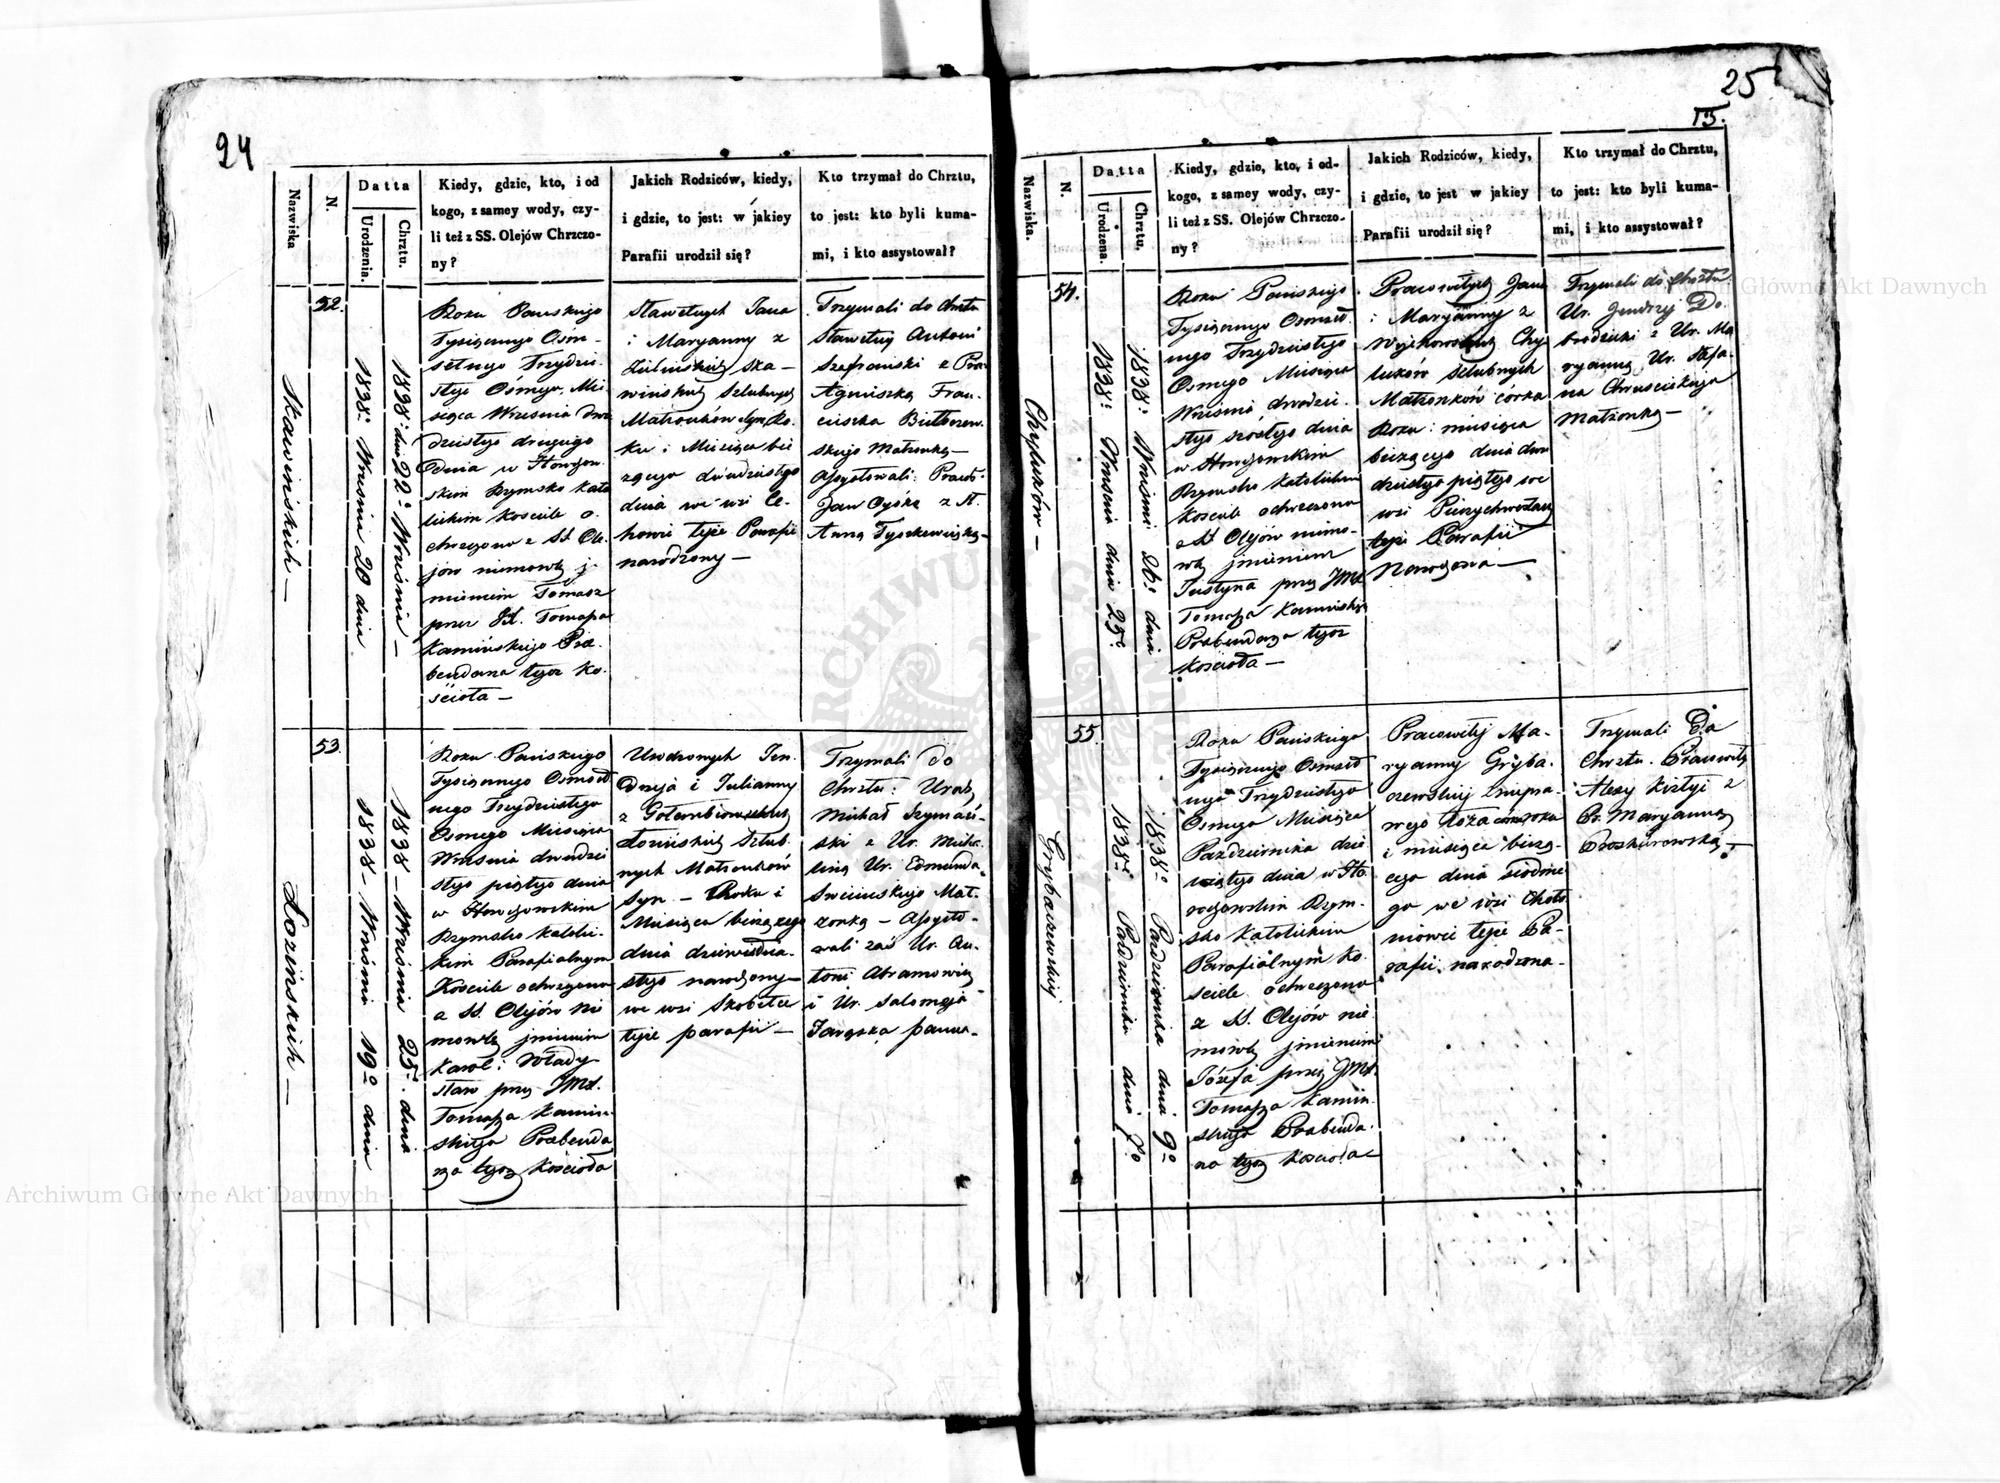 24
Nazwiska
N.
Datta
Urodzenia.
Chrztu.
Kiedy, gdzie, kto, i od
kogo, z samey wody, czy-
li też z SS. Olejów Chrzczo-
ny?
Jakich Rodziców, kiedy,
i gdzie, to jest: w jakiey
Parafii urodził się?
Kto trzymał do Chrztu,
to jest: kto byli kuma-
mi, i kto assystował?
Skawińskich —
52.
1838: Września 20 dnia
1838: dnia 22: Września —
Roku Pańskiego
Tysiącznego Osm-
setnego Trzydzie-
stego Ósmego, Mie-
siąca Września dwu-
dziestego drugiego
dnia w
Rzymsko Kato-
lickim Kościele o-
chrzczono z SS. Ole-
jów niemowlę j-
mieniem Tomasz
przez Tomasza
Kamińskiego Pre-
bendarza tegoż Ko-
ścioła —
Sławetnych Jana
i Maryanny z
Zielińskich Ska-
wińskich Szlubnych
Małżonków Syn, Ro-
ku i Miesiąca bie-
żącego dwudziestego
dnia we wsi Ce-
howie tejże Parafii
narodzony —
Trzymali do Chrztu
Sławetny Antoni
Szafrański z
Agnieszką Fran-
ciszka
skiego Małżonką —
Assystowali: Pracow.
Jan z
Anną Tyszkiewiczką —
Łozińskich —
53.
1838 — Września 19º dnia
1838 — Września 25º. dnia
Roku Pańskiego
Tysiącznego Osmset-
nego Trzydziestego
Osmego Miesiąca
Września dwudzie-
stego piątego dnia
w
Rzymsko Katolic-
kim Parafialnym
Kościele ochrzczono
z SS. Olejów nie-
mowlę jmieniem
Karol i Włady-
sław przez JMX.
Tomasza Kamiń-
skiego Prebenda-
rza tegoż Kościoła
Urodzonych Ien-
drzeja i Julianny
z Gołembiowskich
Łozińskich Szlub-
nych Małżonków
Syn — Roku i
Miesiąca bieżącego
dnia dziewiętna-
stego narodzony —
we wsi Skobełce
tejże parafii —
Trzymali do
Chrztu: Urodz.
Michał Szymań-
ski z Ur. Micha-
liną Ur. Edmunda
Małżonką — Assysto-
wali zaś Ur. An-
toni Abramowicz
i Ur. Salomeja
panna —
25
15.
Nazwiska.
N.
Datta
Urodzena.
Chrztu.
Kiedy, gdzie, kto, i od-
kogo, z samey wody, czy-
li też z SS. Olejów Chrzczo-
ny?
Jakich Rodziców, kiedy,
i gdzie, to jest w jakiey
Parafii urodził się?
Kto trzymał do Chrztu,
to jest: kto byli kuma-
mi, i kto assystował?
Chyluków —
54.
1838: Września dnia 25º
1838: Wrześni 26: dnia
Roku Pańskiego
Tysiącznego Osmset-
nego Trzydziestego
Osmego Miesiąca
Wrześnią dwudzie-
stego szóstego dnia
w
Rzymsko Katolickim
Kościele ochrzczono
z SS. Olejów niemo-
wlę jmieniem
Justyna przez JMX
Tomasza Kamińskiego
Prebendarza tegoż
Kościoła —
Pracowitych Jana
i Maryanny z
Chy-
luków Szlubnych
Małżonków córka
Roku i miesiąca
bieżącego dnia dwu-
dziestego piątego we
wsi
tejże Parafii
Narodzona —
Trzymali do Chrztu
Ur. Jendrzy Do-
brodzicki z Ur. Ma-
ryanną Ur. Stefa-
na
Małżonką —
Grybaczewskiej
55.
1838: Padziernika dnia 7º
1838: Października dnia 9º
Roku Pańskiego
Tysiącznego Osmset-
nego Trzydziestego
Osmego Miesiąca
Października dzie-
wiątego dnia w Ho-
Rzym-
sko Katolickim
Parafialnym Ko-
ściele ochrzczono
z SS. Olejów nie-
mowlę jmieniem
Józefa przez JMX.
Tomasza Kamiń-
skiego Prebenda-
rza tegoż Kościoła —
Pracowitej Ma-
ryanny Gryba-
czewskiej z niepra-
wego łoża córka roku
i miesiąca bieżą-
cego dnia siódme-
go we wsi Choło-
niowie tejże Pa-
rafii narodzona —
Trzymali Do
Chrztu. Pracowity
z
Pr. Maryanną
Proskurowską —
Archiwum Główne Akt Dawnych
Główne Akt Dawnych